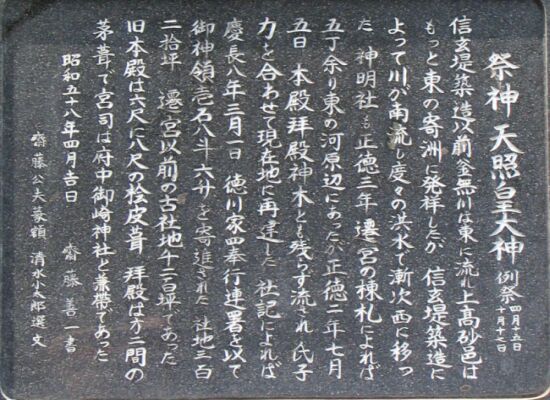 祭神 天照皇大神 例祭 四月十五日 十月十七日
信玄堤築造以前釜無川は東に流れ上高砂邑は
もっと東の寄洲に発祥したが 信玄堤築造に
よって川が南流し度々の洪水で漸次西に移っ
た 神明社も正徳三年 遷宮の棟札によれば
五丁余り東の河原辺にあったが正徳二年七月
五日 本殿拝殿神木とも残らず流され 氏子
力を合わせて現在地に再建した 社記によれば
慶長八年三月一日 徳川家四奉行連署を以て
御神領壱石八斗六升を寄進された 社地三百
二拾坪 遷宮以前の古社地千二百坪であった
旧本殿は六尺に八尺の桧皮葺 拝殿は方二間の
茅葺で宮司は府中御崎神社と兼帯であった
昭和五十八年四月吉日 齋藤善一書
齋藤公夫篆額 清水小太郎選文